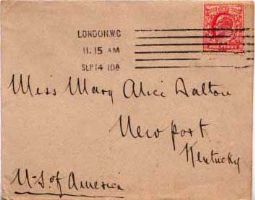 LONDON.W.C
11.15 AM
SEP 14 10A
Miss Mary Alice Dalton
Newport
Kentucky
U-S. of America